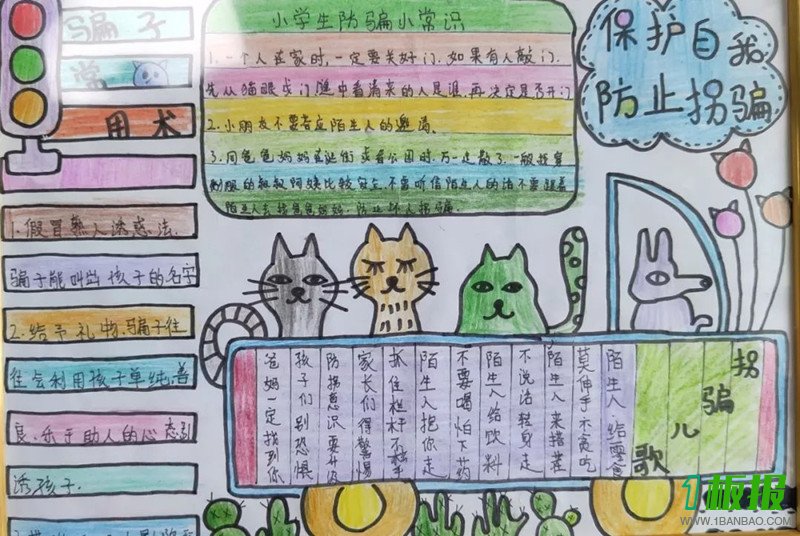 骗子
常
用术
1.假冒熟人诱惑法.
骗子能叫出孩子的名字
2.给予礼物.骗子往
往会利用孩子单纯.善
良.乐于助人的心态引
诱孩子.
小学生防骗小常识
1.一个人在家时,一定要关好门.如果有人敲门.
先从猫眼或门缝中看清来的人是谁.再决定是否开门
2.小朋友不要答应陌生人的邀请.
3.同爸爸妈妈在逛街或者公园时.万一走散了.一般找穿
制服的叔叔阿姨比较安全.不要听信陌生人的话不要跟着
陌生人去找爸爸妈妈.防止坏人拐骗
保护自我
防止拐骗
拐骗儿歌
陌生人给零食
莫伸手不贪吃
陌生人来搭茬
不说话转身走
陌生人给饮料
不要喝怕下药
陌生人把你走
抓住栏杆不松手
家长们得警惕
防拐意识要升级
孩子们别恐惧
爸妈一定找到你
1板报
WWW.1BANBAO.COM